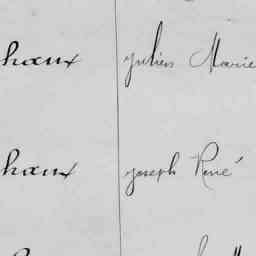 haux Julien Marie
haux Joseph René